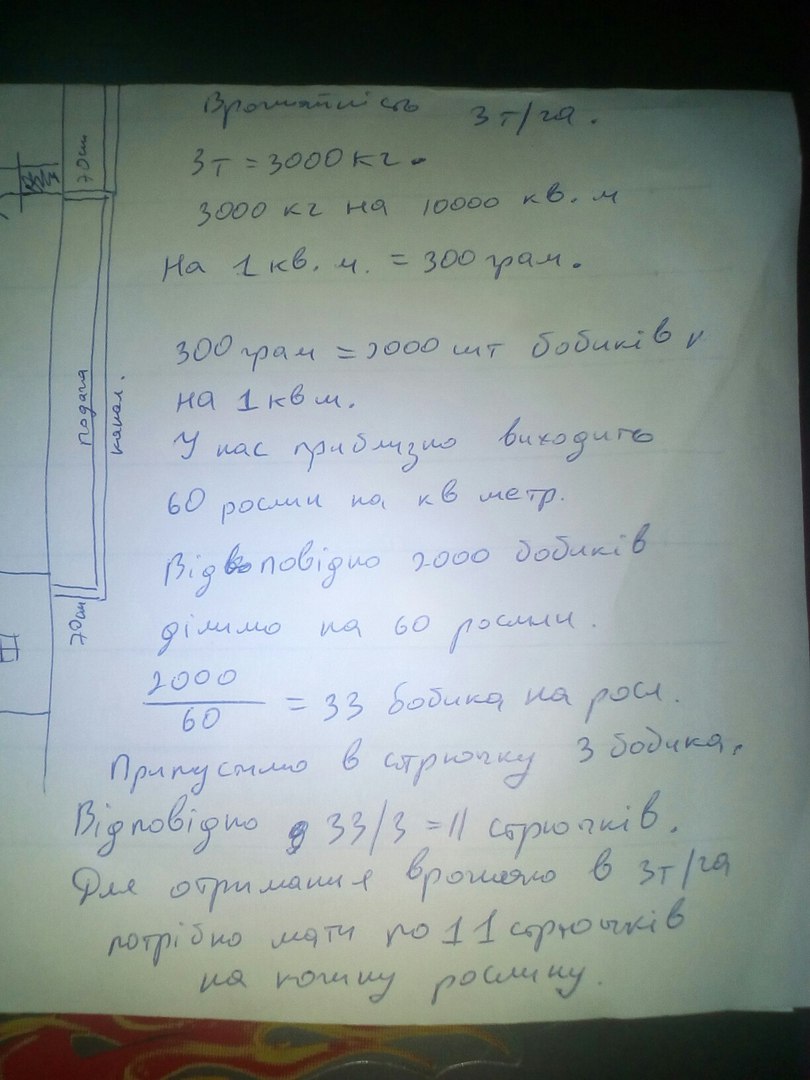 Врожайність 3т/га.
3т = 3000 кг.
3000 кг на 10000 кв. м
На 1 кв. м. = 300 грам.
300 грам = 2000 шт бобиків
на 1 кв м.
У нас приблизно виходить
60 рослин на кв метр.
Відповідно 2000 бобиків
ділимо на 60 рослин.
2000
60
= 33 бобика на росл.
Припустимо в стрючку 3 бобика.
Відповідно 33/3 = 11 стрючків.
Для отримання врожаю в 3т/га
потрібно мати по 11 стрючків
на кожну рослину.
70см
подача
канал.
70см